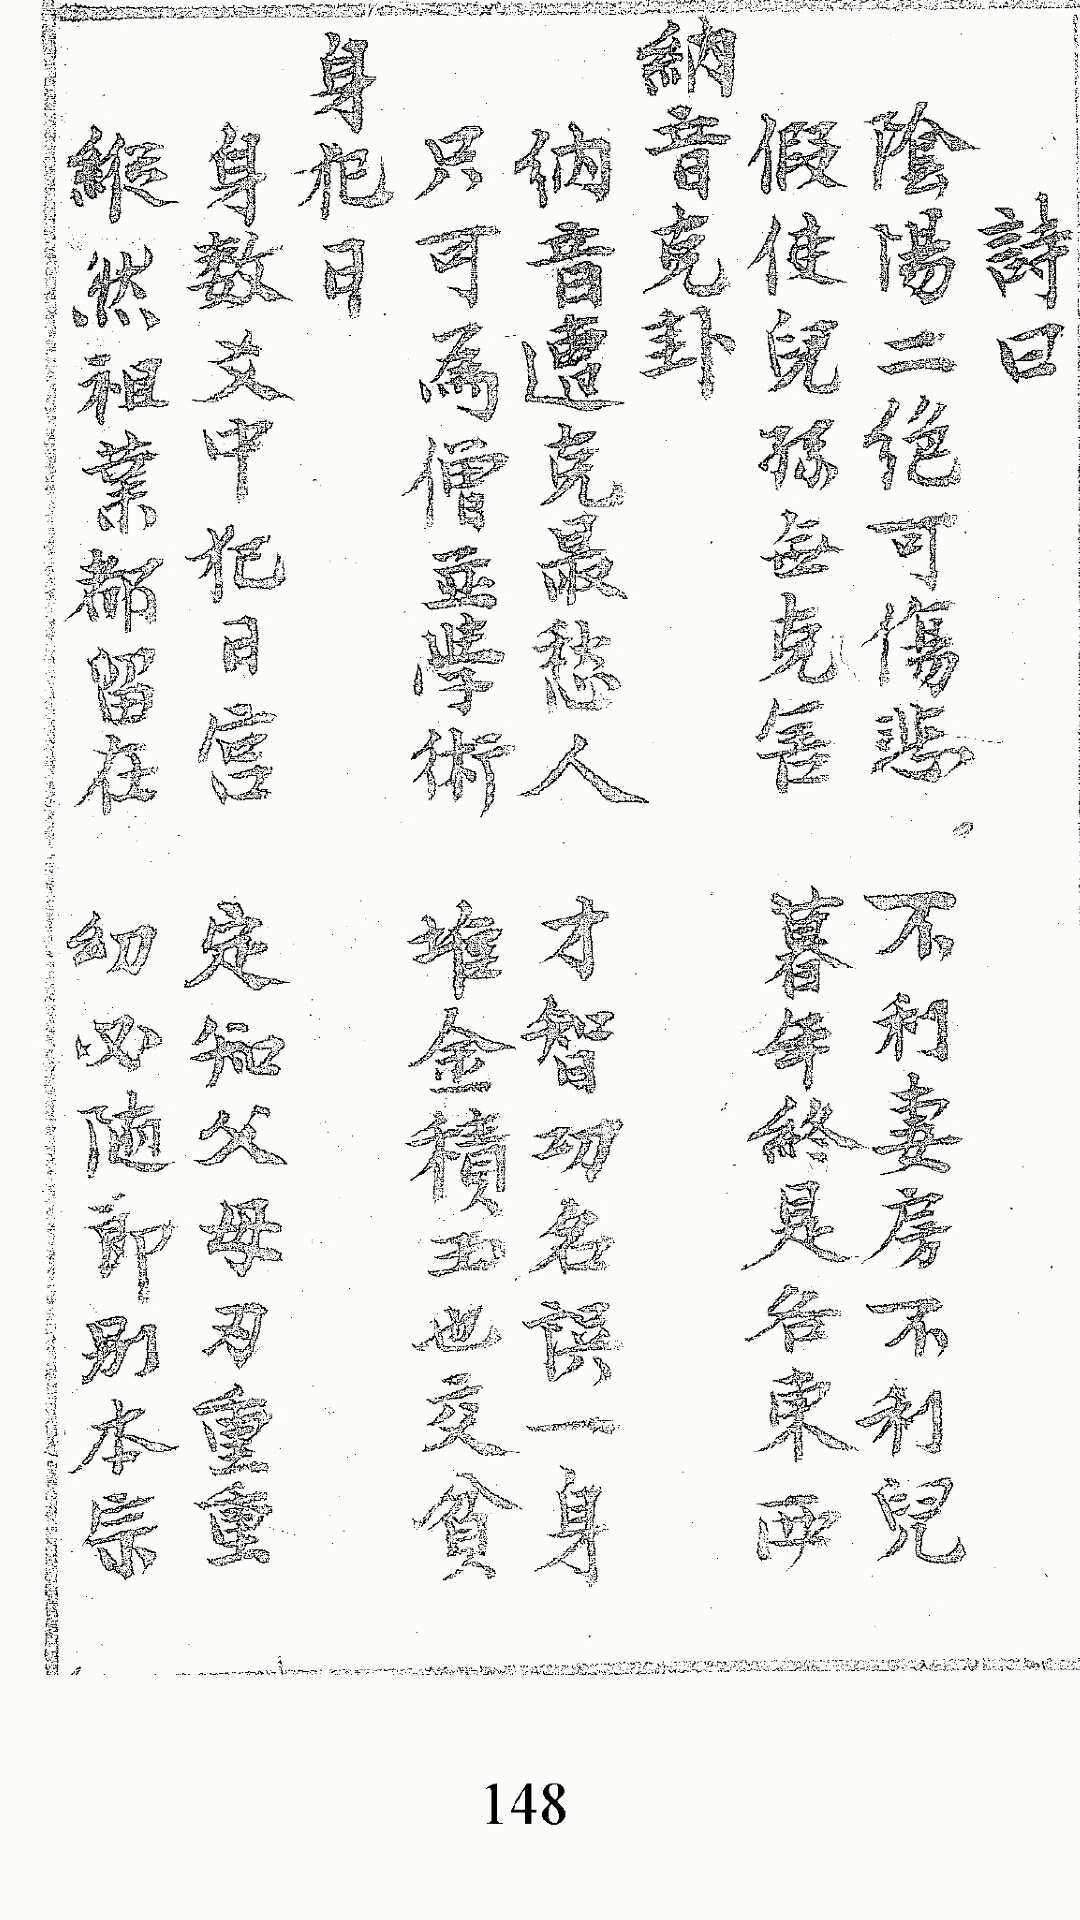 詩曰
陰陽二絶可傷悲　不利妻房不利兒
假使兒孫無克害　暮年終是各東西
納音克卦
納音遭克最愁人　才智功名誤一身
只可為僧並學術　堆金積玉也交貧
身犯日
身数爻中犯日宫　定知父母刃重重
縱然祖業都留在　幼必随郎别本宗
148